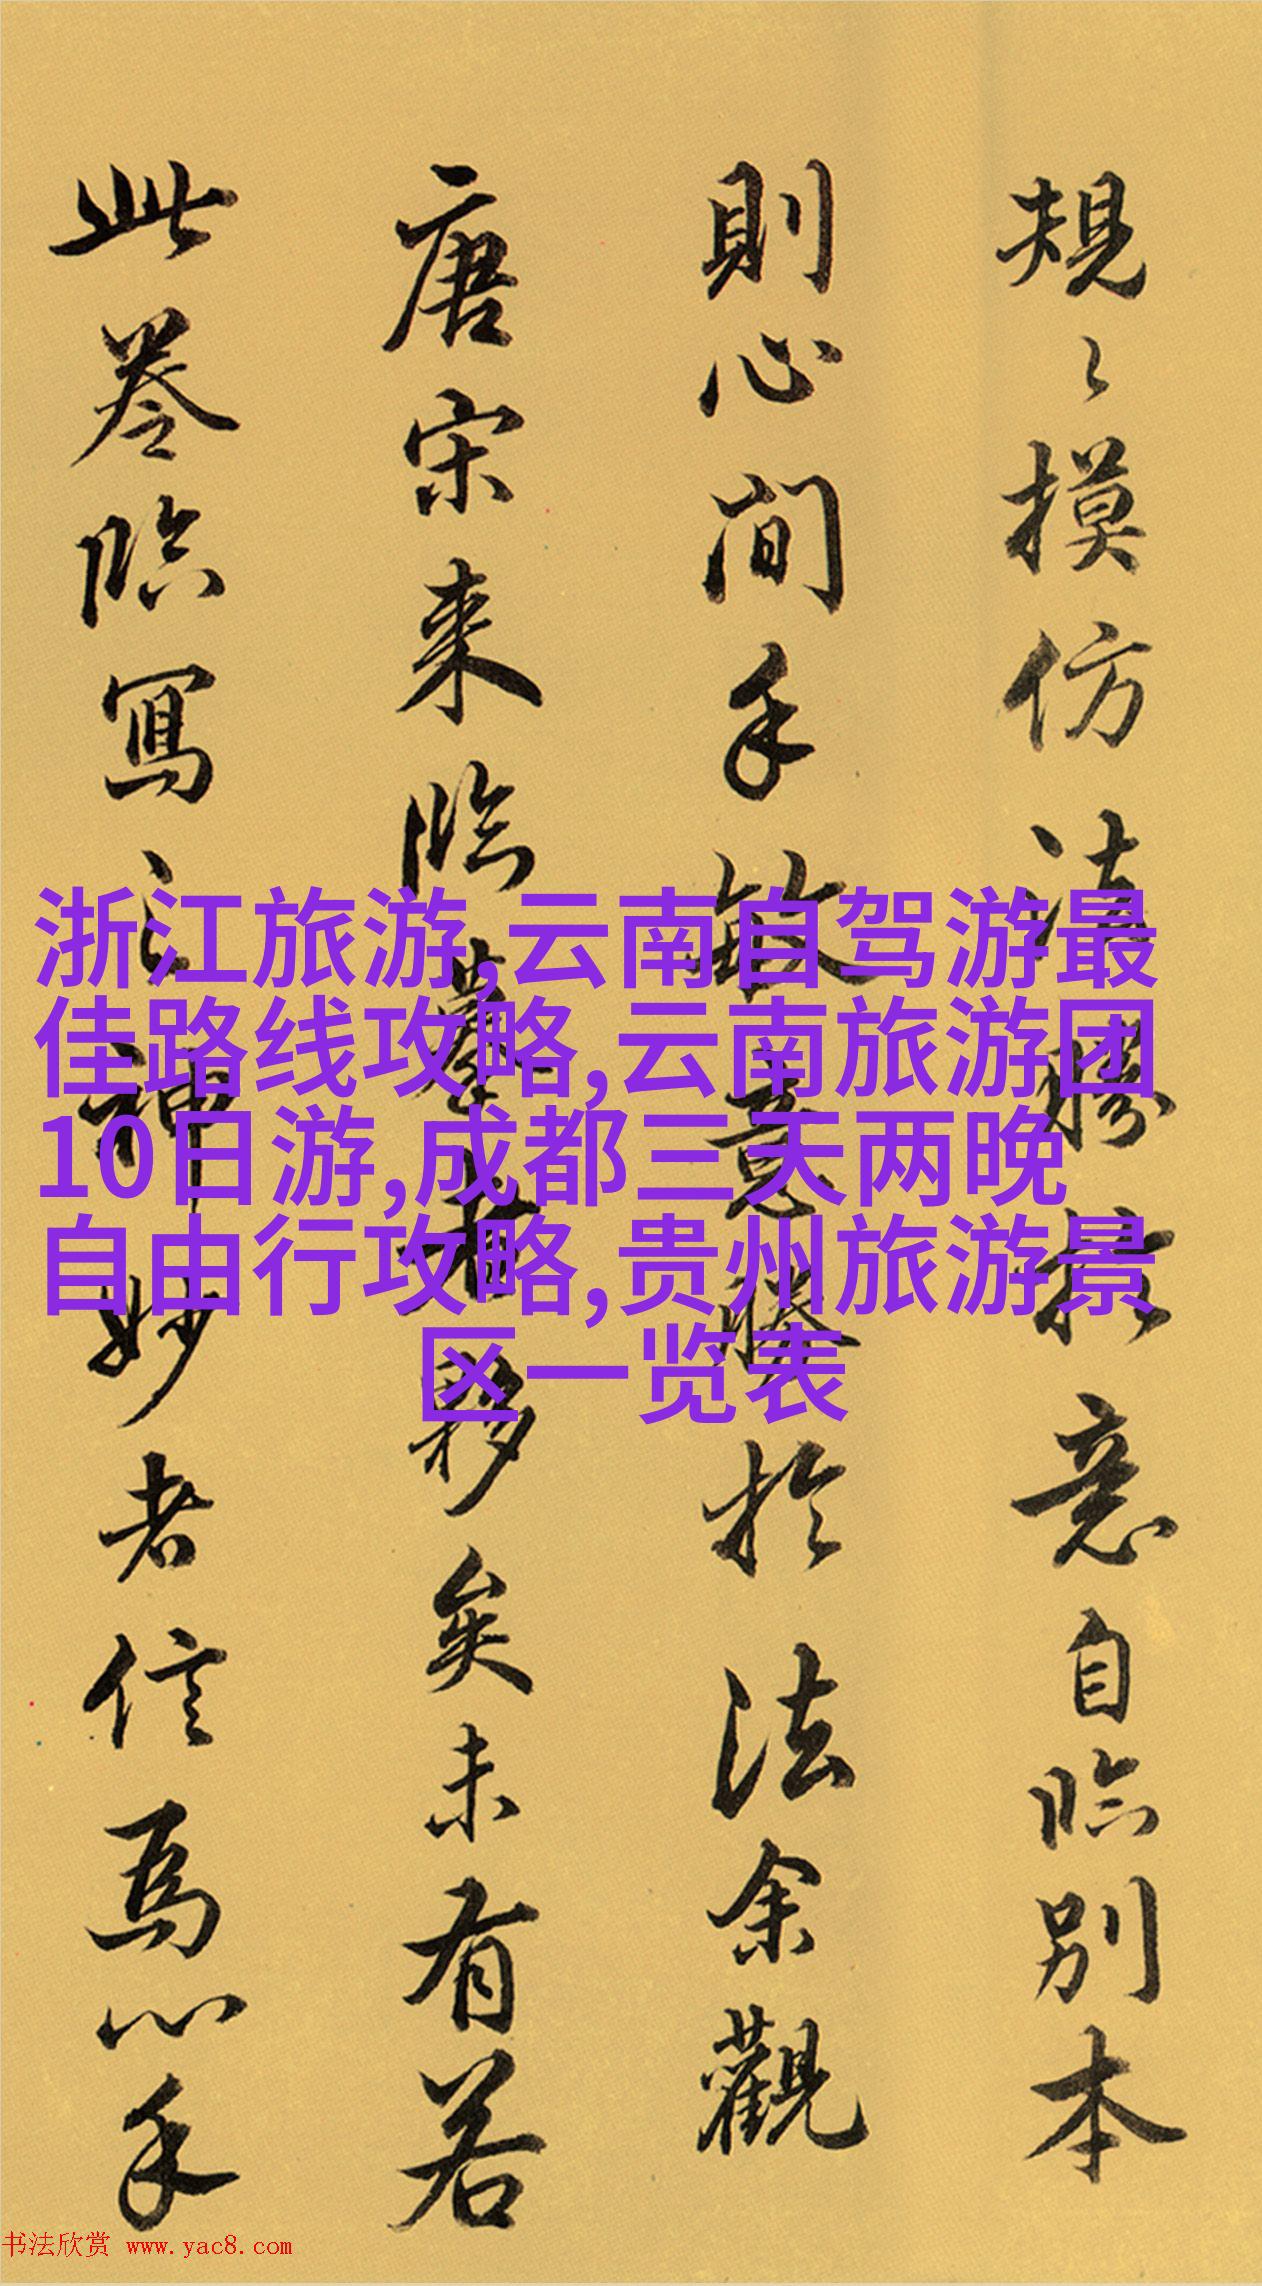 規〻摸仿法勝於意自臨別本
則心閒手敏意勝於法余觀
唐宋来臨摹者夥矣未有若
此卷臨寫之神妙者信焉心手
浙江旅游,云南自驾游最
佳路线攻略,云南旅游团
10日游,成都三天两晚
自由行攻略,贵州旅游景
区一览表
书法欣赏 www.yac8.com